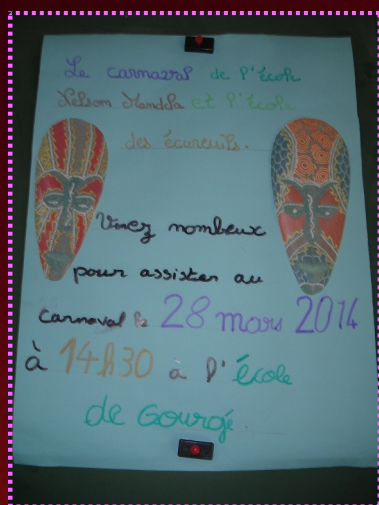 Le carnaval de l'École
Nelson Mandela et l'école
des écureuils.
Venez nombreux
pour assister au
carnaval le 28 mars 2014
à 14h30 à l'école
de Gourgé